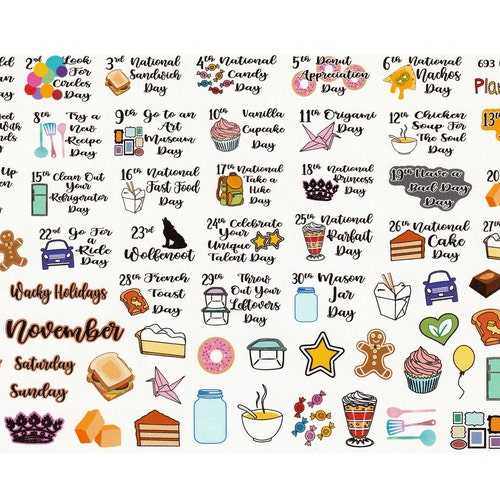 2nd Look
For
Circles
Day
3rd National
Sandwich
Day
4th National
Candy
Day
5th Donut
Appreciation
Day
6th National
Nachos
Day
693
Plan
8th Try a
New
Recipe
Day
9th Go to an
Art
Museum
Day
10th Vanilla
Cupcake
Day
11th Origami
Day
12th Chicken
Soup For
The Soul
Day
13th
Up
15th Clean Out
Your
Refrigerator
Day
16th National
Fast Food
Day
17th National
Take a
Hike
Day
18th National
Princess
Day
19th Have a
Bad Day
Day
20
22nd Go For
a
Ride
Day
23rd
Wolfenoot
24th Celebrate
Your
Unique
Talent Day
25th National
Parfait
Day
26th National
Cake
Day
27th
28th French
Toast
Day
29th Throw
Out Your
Leftovers
Day
30th Mason
Jar
Day
Wacky Holidays
November
Saturday
Sunday